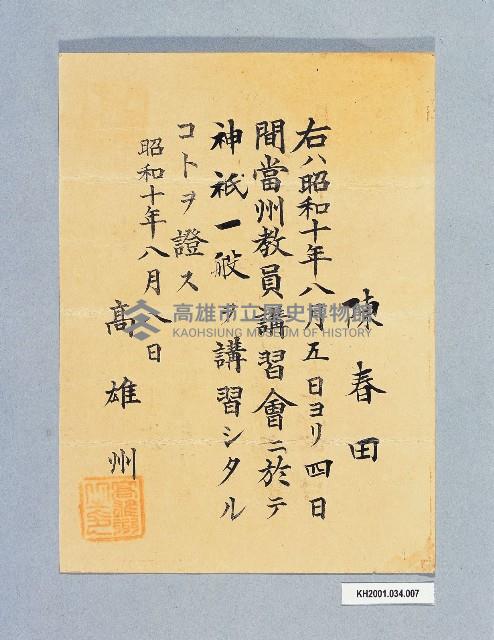 陳春田
右ハ昭和十年八月五日ヨリ四日
間當州教員講習會ニ於テ
神祇一般ヲ講習シタル
コトヲ證ス
昭和十年八月八日
高雄州
高雄市立歷史博物館
KAOHSIUNG MUSEUM OF HISTORY
KH2001.034.007